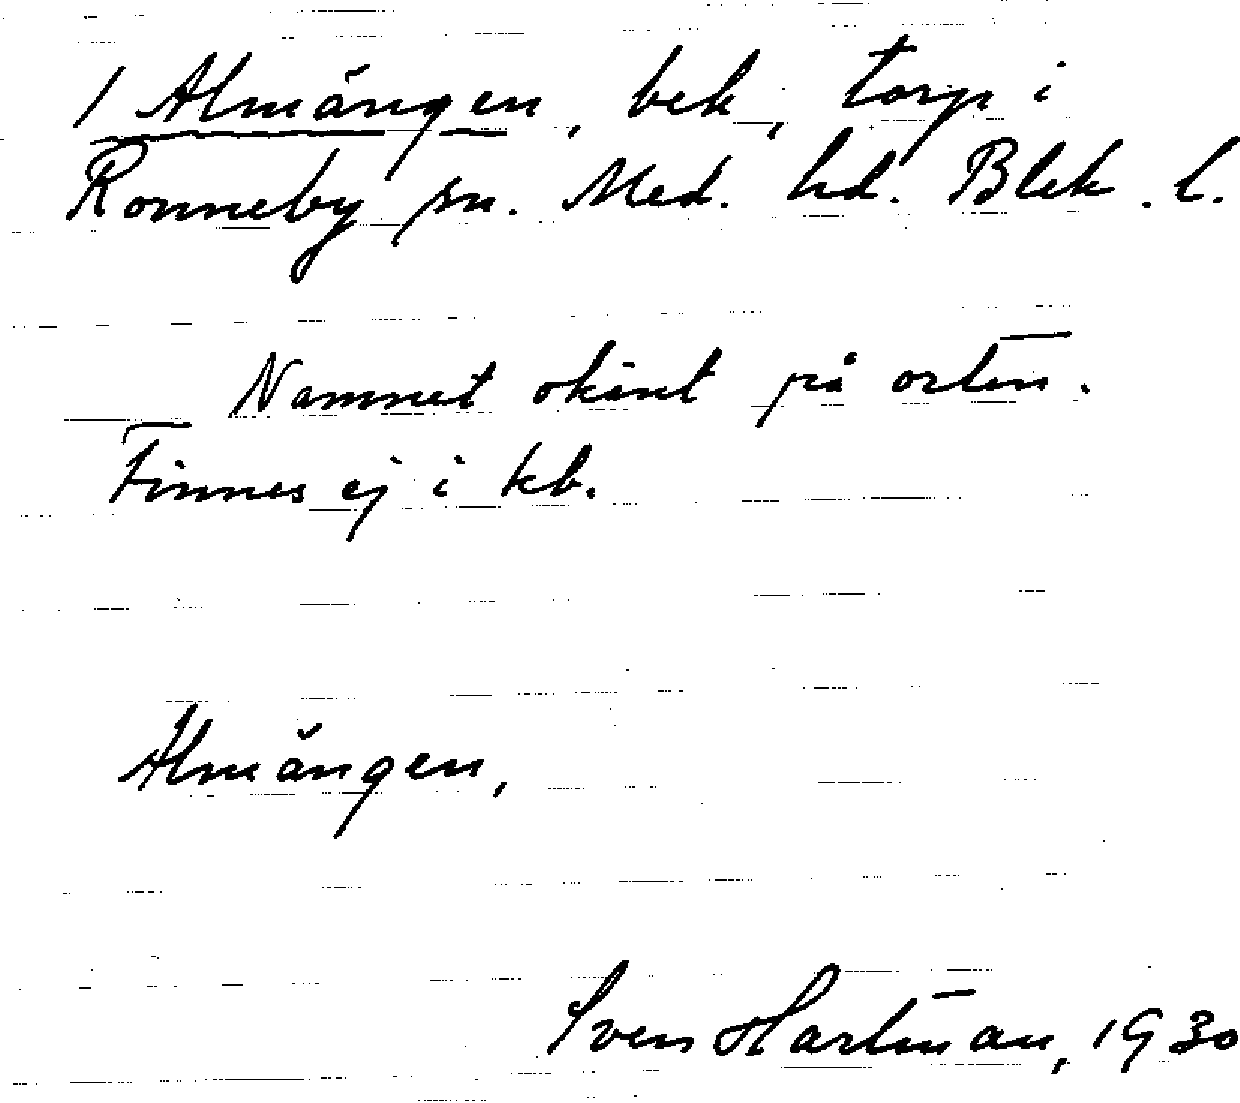 / Almängen, bek, torp i
Ronneby sn. Med. hd. Blek. l.
Namnet okänt på orten.
Finnes ej i kb.
Almängen,
Sven Hartman, 1930